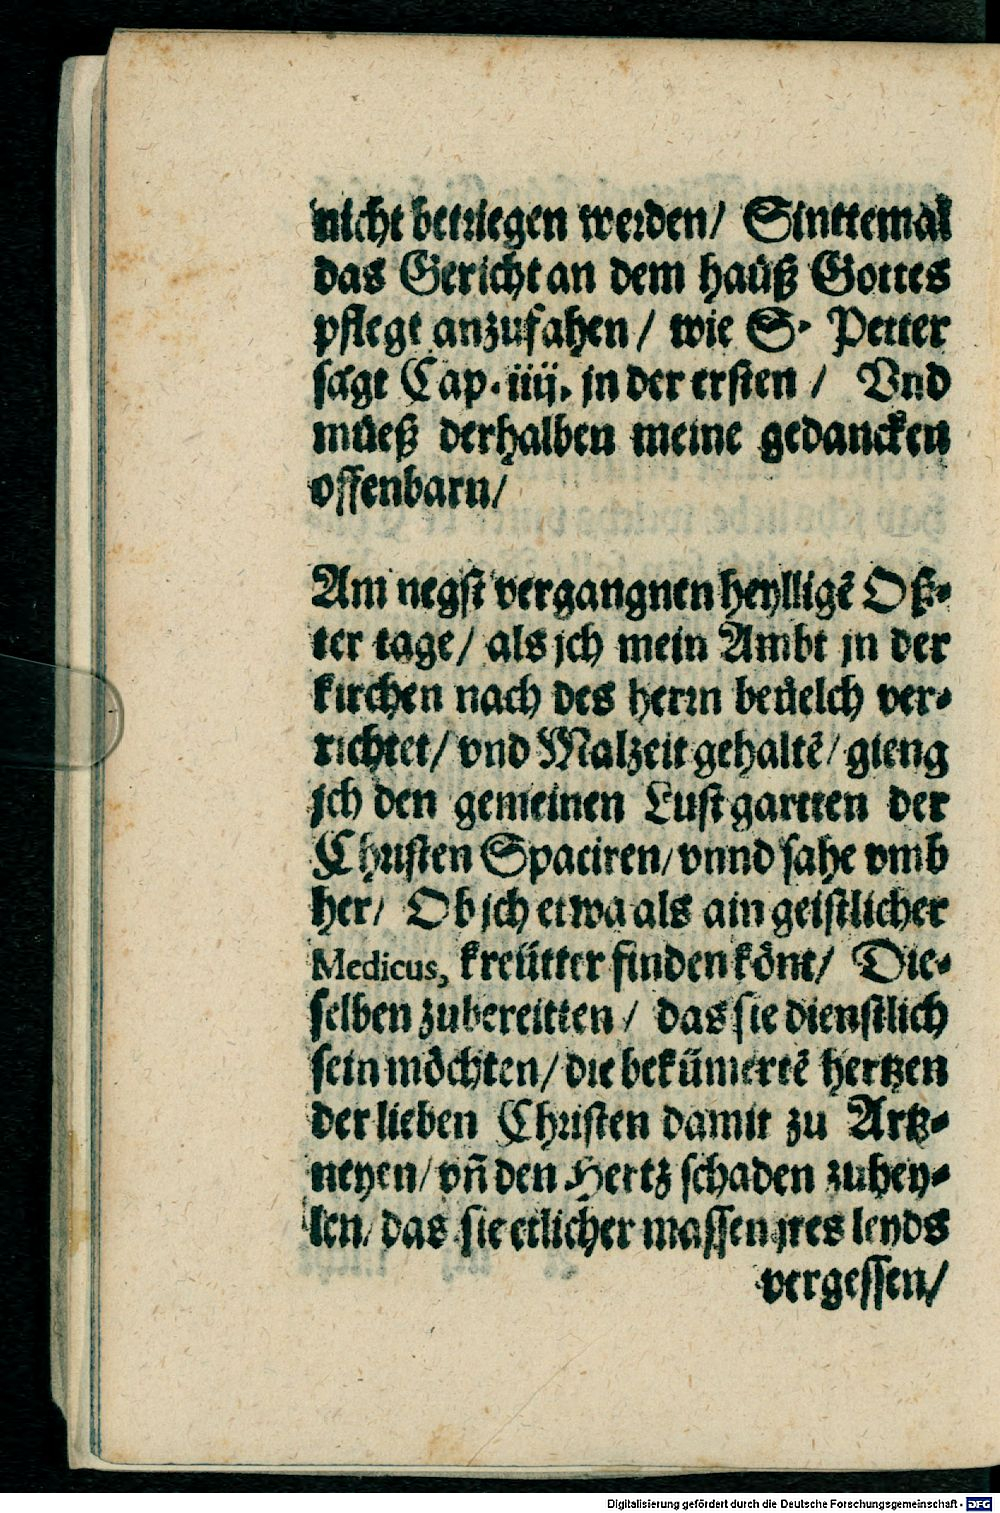 nicht betriegen werden/ Sinttemal
das Gericht an dem haůß Gottes
pflegt anzufahen/ wie S. Petter
sagt Cap. iiij. jn der ersten / Vnd
můeß derhalben meine gedancken
offenbarn/
Am negst vergangnen heylligẽ Oß-
ter tage/ als jch mein Ambt jn der
kirchen nach des herrn beůelch ver-
richtet/ vnd Malzeit gehaltẽ/ gieng
jch den gemeinen Lustgartten der
Christen Spaciren/ vnnd sahe vmb
her/ Ob jch etwa als ain geistlicher
Medicus, kreütter finden kônt/ Die-
selben zubereitten / das sie dienstlich
sein môchten/ die bekümertẽ hertzen
der lieben Christen damit zu Artz-
neyen/ vñ den Hertz schaden zuhey-
len/ das sie etlicher massen jres leyds
vergessen/
Digitalisierung gefördert durch die Deutsche Forschungsgemeinschaft - DFG